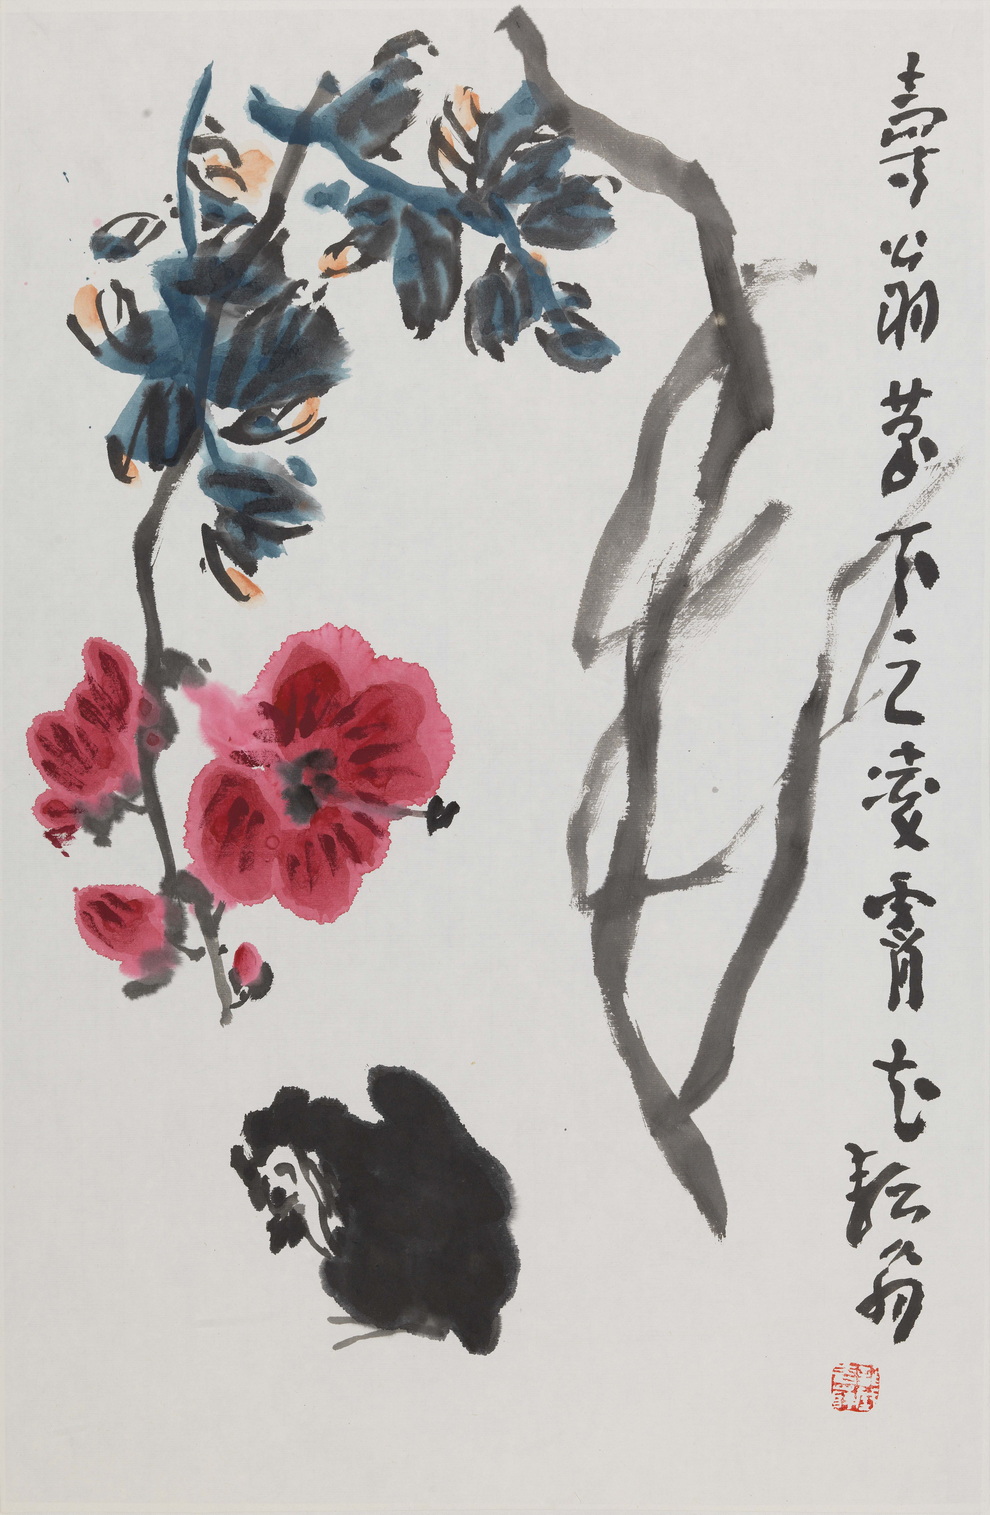 壽翁草下之凌霄花
耘翁